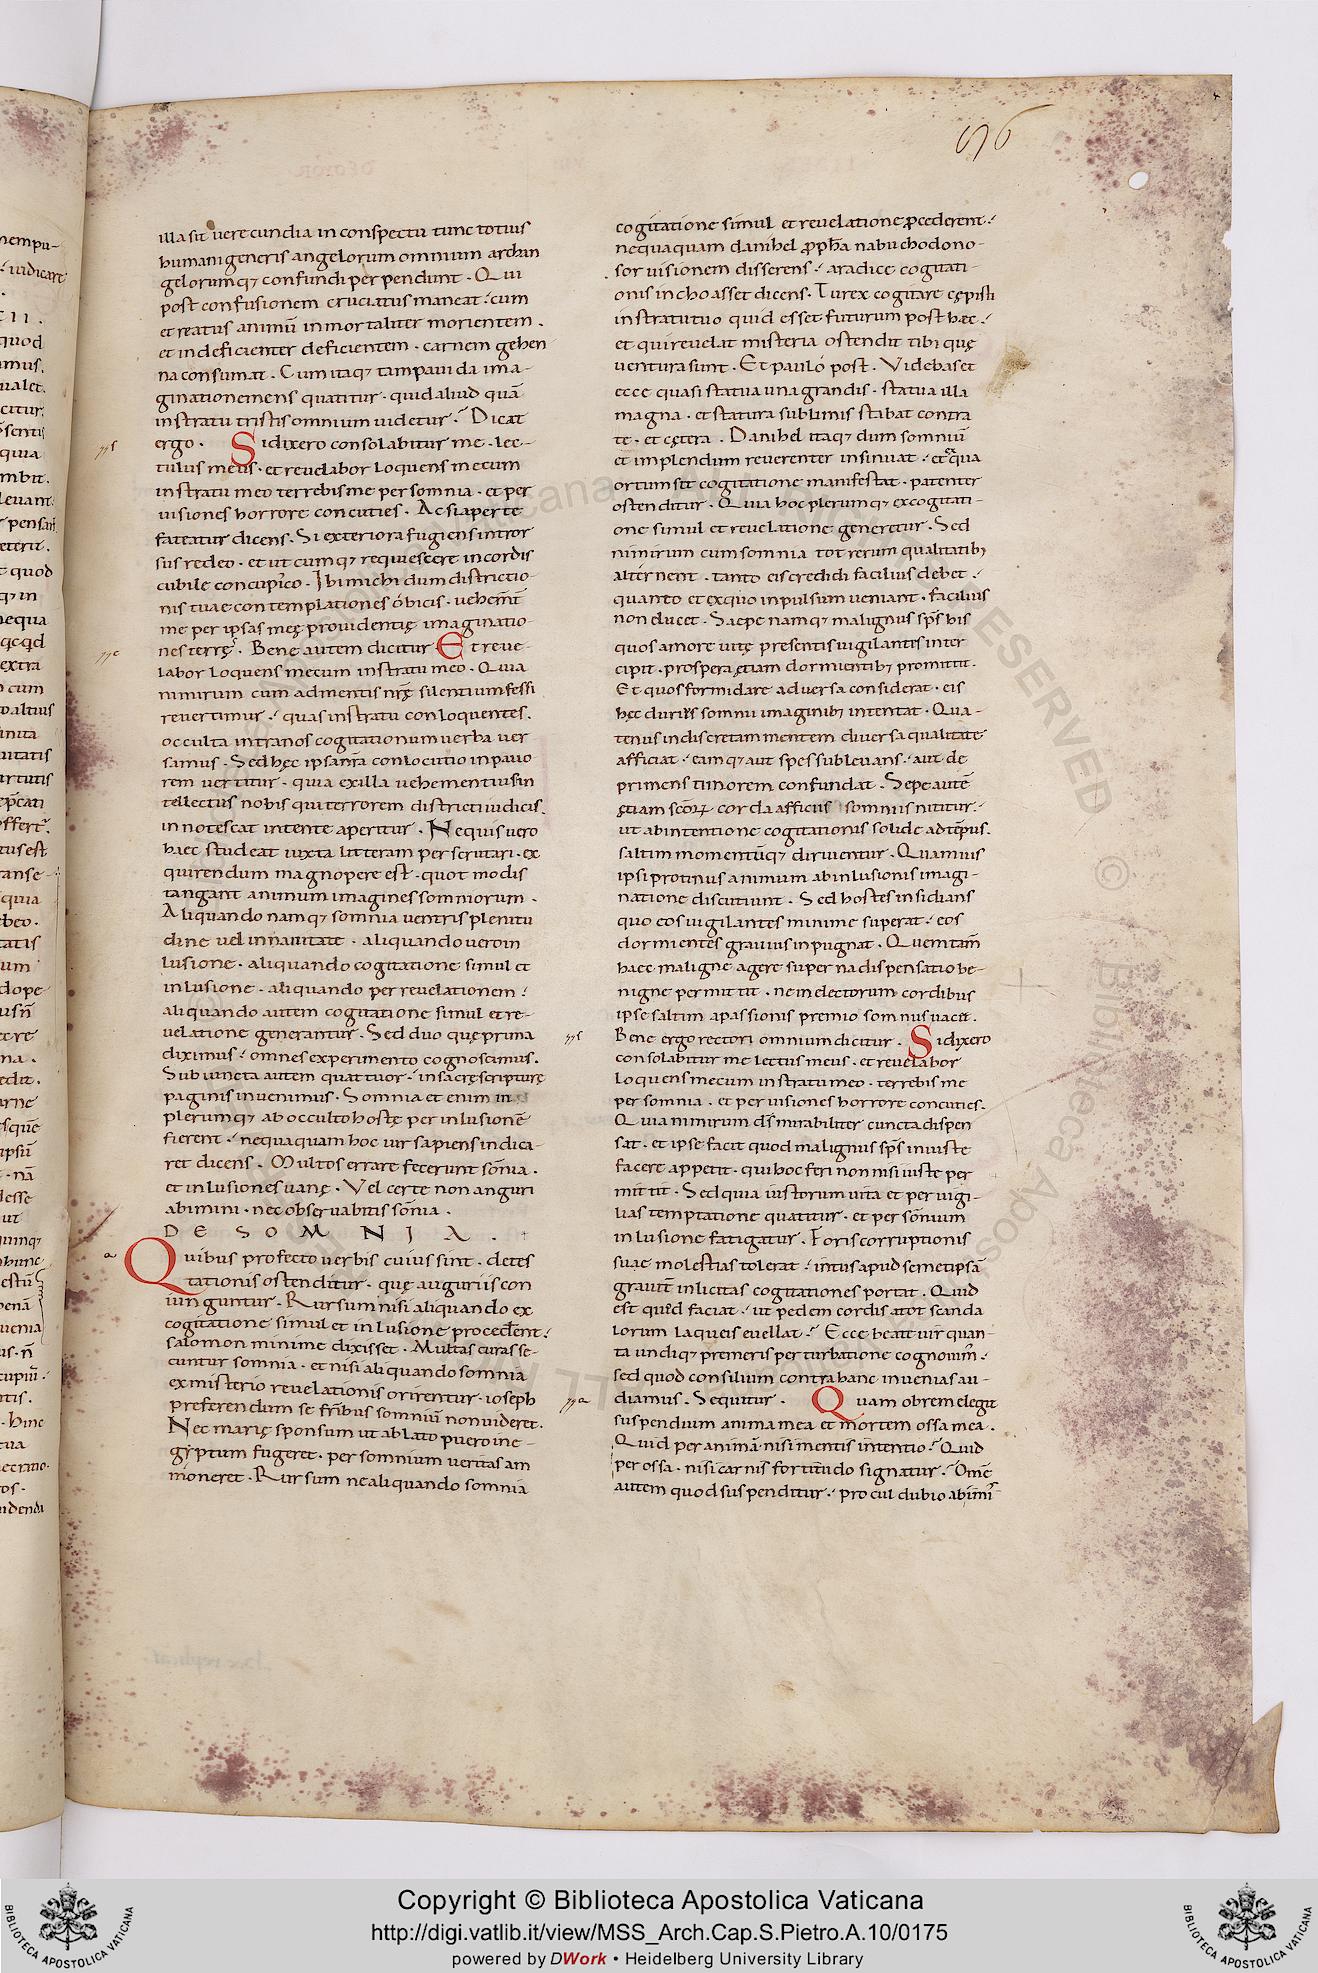 illa sit uerecundia in conspectu tunc totius
humani generis angelorum omnium archan
gelorumq; confundi perpendunt . Qui
post confusionem cruciatus maneat . cum
et reatus animū inmortaliter morientem .
et indeficienter deficientem . carnem gehen
na consumat . Cum itaq; tam pauida ima-
ginatione mens quatitur . quid aliud quā
in stratu tristis omnium uidetur . Dicat
ergo . Si dixero consolabitur me . lec-
tulus meus . et reuelabor loquens mecum
in stratu meo terrebis me per somnia . et per
uisiones horrore concuties . Ac si aperte
fateatur dicens . Si exteriora fugiens intror
sus redeo . et utcumq; requiescere in cordis
cubile concupisco . Ibi michi dum districtio-
nis tuae contemplationes obicis . uehemt̄
me per ipsas meę prouidentię imaginatio-
nes terrēs . Bene autem dicitur Et reue-
labor loquens mecum in stratu meo . Quia
nimirum cum ad mentis nr̄ę silentium fessi
reuertimur . quas in stratu conloquentes .
occulta intra nos cogitationum uerba uer
samus . Sed hęc ipsa nr̄a conlocutio in pauo
rem uertitur . quia ex illa uehementius in
tellectus nobis qui terrorem districti iudicis .
innotescat intente aperitur . Nequis uero
haec studeat iuxta litteram perscrutari . ex
quirendum magnopere est . quot modis
tangant animum imagines somniorum .
Aliquando namq; somnia uentris plenitu
dine uel inanitate . aliquando uero in
lusione . aliquando cogitatione simul et
inlusione . aliquando per reuelationem .
aliquando autem cogitatione simul et re-
uelatione generantur . Sed duo quę prima
diximus . omnes experimento cognoscimus .
Subiuncta autem quattuor . in sacrę scripturę
paginis inuenimus . Somnia etenim in
plerumq; ab occulto hoste per inlusionē
fierent . nequaquam hoc uir sapiens indica-
ret dicens . Multos errare fecerunt som̄ia .
et inlusiones uanę . Vel certe non auguri
abimini . nec obseruabitis som̄ia .
DE SOMNIA .
Quibus profecto uerbis cuius sint . detes
tationis ostenditur . quę auguriis con
iunguntur . Rursum nisi aliquando ex
cogitatione simul et inlusione procederent .
salomon minime dixisset . Multas curas se-
cuntur somnia . et nisi aliquando somnia
ex misterio reuelationis orirentur . ioseph
preferendum se fr̄ibus somniū non uideret .
Nec marię sponsum ut ablato puero in e-
gyptum fugeret . per somnium ueritas am
moneret . Rursum ne aliquando somnia
676
cogitatione simul et reuelatione procederent .
nequaquam danihel ꝓph̄a nabuchodono-
sor uisionem disserens . a radice cogitati-
onis inchoasset dicens . Tu rex cogitare cępisti
in stratu tuo quid esset futurum post hęc .
et qui reuelat misteria ostendit tibi quę
uentura sunt . Et paulo post . Videbas et
ecce quasi statua una grandis . statua illa
magna . et statura sublimis stabat contra
te . et cętera . Danihel itaq; dum somniū
et implendum reuerenter insinuat . et ex qua
ortum sit cogitatione manifestat . patenter
ostenditur . Quia hoc plerumq; ex cogitati-
one simul et reuelatione generetur . Sed
nimirum cum somnia tot rerum qualitatib;
alternent . tanto eis credi difficilius debet .
quanto et ex quo inpulsum ueniant . facilius
non elucet . Saepe namq; malignus sp̄s his
quos amore uitę presentis uigilantes inter
cipit . prospera ętiam dormientib; promittit .
Et quos formidare aduersa considerat . eis
hęc durius somnii imaginib; intentat . Qua-
tenus indiscretam mentem diuersa qualitate
afficiat . eamq; aut spes subleuans . aut de
primens timorem confundat . Sępe autē
ętiam sc̄orꝝ corda afficiis somniis nititur .
ut ab intentione cogitationis solide ad tēpus .
saltim momentūq; diriuentur . Quamuis
ipsi protinus animum ab inlusionis imagi-
natione discutiunt . Sed hostes insidians
quo eos uigilantes minime superat . eos
dormientes grauius inpugnat . Quem tam̄
haec maligne agere superna dispensatio be-
nigne permittit . ne in electorum cordibus
ipse saltim a passionis premio somnus uacet .
Bene ergo rectori omnium dicitur . Si dixero
consolabitur me lectus meus . et reuelabor
loquens mecum in stratu meo . terrebis me
per somnia . et per uisiones horrore concuties .
Quia nimirum ds̄ mirabiliter cuncta dispen
sat . et ipse facit quod malignus sp̄s iniuste
facere appetit . qui hoc fieri non nisi iuste per
mittit . Sed quia iustorum uita et per uigi-
lias temptatione quatitur . et per somnium
inlusione fatigatur . Foris corruptionis
suae molestias tolerat . intus apud semetipsā
grauit̄ inlicitas cogitationes portat . Quid
est quod faciat . ut pedem cordis a tot scanda
lorum laqueis euellat . Ecce beate uir quan-
ta undiq; premeris perturbatione cognouim̄ .
sed quod consilium contra hanc inuenias au-
diamus . Sequitur . Quam obrem elegit
suspendium anima mea et mortem ossa mea .
Quid per animā nisi mentis intentio . Quid
per ossa . nisi carnis fortitudo signatur . Om̄e
autem quod suspenditur . procul dubio ab im̄i
Copyright © Biblioteca Apostolica Vaticana
http://digi.vatlib.it/view/MSS_Arch.Cap.S.Pietro.A.10/0175
powered by DWork • Heidelberg University Library